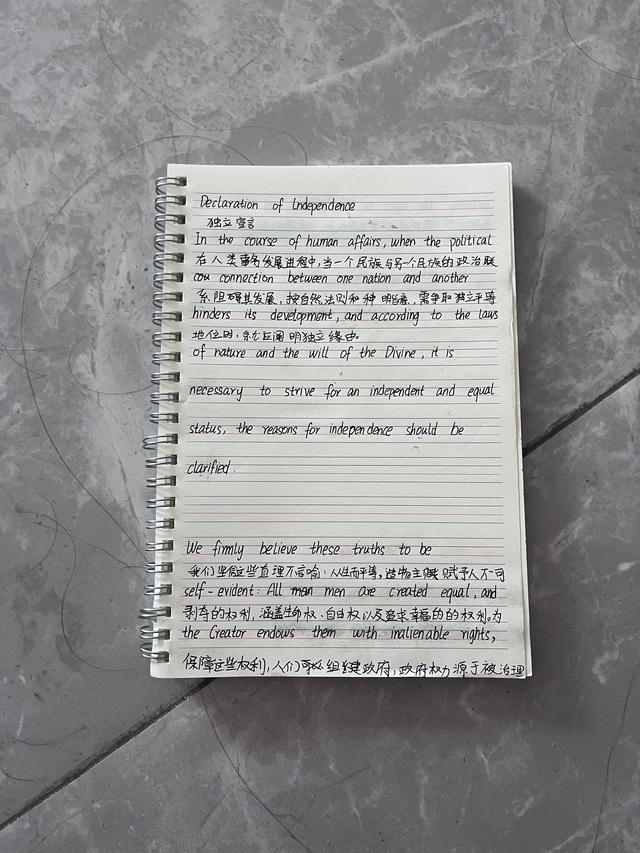 Declaration of Independence
独立宣言
In the course of human affairs, when the political
在人类事务发展进程中,当一个民族与另一个民族的政治联
cou connection between one nation and another
系阻碍其发展,按自然法则和神明旨意,需争取独立平等
hinders its development, and according to the laws
地位时,就应阐明独立缘由。
of nature and the will of the Divine, it is
necessary to strive for an independent and equal
status, the reasons for independence should be
clarified.
We firmly believe these truths to be
我们坚信这些真理不言喻:人人生而平等,造物主赋予人不可
self-evident: All men are created equal, and
剥夺的权利,涵盖生命权、自由权以及追求幸福的的权利。为
the Creator endows them with inalienable rights,
保障这些权利,人们可以组建政府,政府权力源于被治理